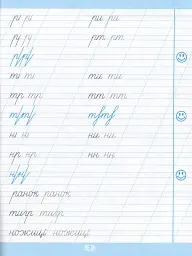 рі рі ри ри
ру ру рт рт
ті ті ти ти
тр тр тт тт
ні ні ни ни
нр нр нн нн
ранок ранок
тигр тигр
ножиці ножиці